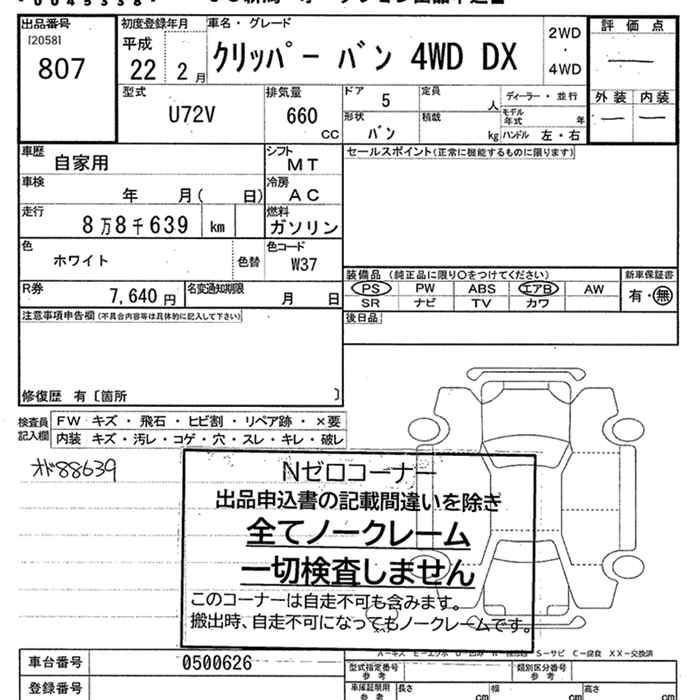 出品番号
[2058]
807
初度登録年月
平成
22 2月
車名・グレード
クリッパー バン 4WD DX
2WD
・
4WD
評価点
—
外装 内装
— —
型式
U72V
排気量
660
CC
ドア 5
形状 バン
定員 人
積載 kg
ディーラー・並行
モデル年式 年
ハンドル 左・右
車歴 自家用
シフト MT
セールスポイント(正常に機能するものに限ります)
車検 年 月( 日)
冷房 AC
走行 8万8千639 km
燃料 ガソリン
色 ホワイト 色替
色コード W37
装備品 (純正品に限り○をつけてください)
新車保証書
PS PW ABS エアB AW
SR ナビ TV カワ
有・無
R券 7,640円
名変通知期限 月 日
注意事項申告欄(不具合内容等は具体的に記入して下さい)
後日品
修復歴 有〔箇所 〕
検査員記入欄
FW キズ・飛石・ヒビ割・リペア跡・×要
内装 キズ・汚レ・コゲ・穴・スレ・キレ・破レ
メーター88639
Nゼロコーナー
出品申込書の記載間違いを除き
全てノークレーム
一切検査しません
このコーナーは自走不可も含みます。
搬出時、自走不可になってもノークレームです。
S－サビ C－腐食 XX－交換済
車台番号 0500626
型式指定番号 参考
類別区分番号 参考
登録番号
車庫証明用 参考
長さ cm
幅 cm
高さ cm